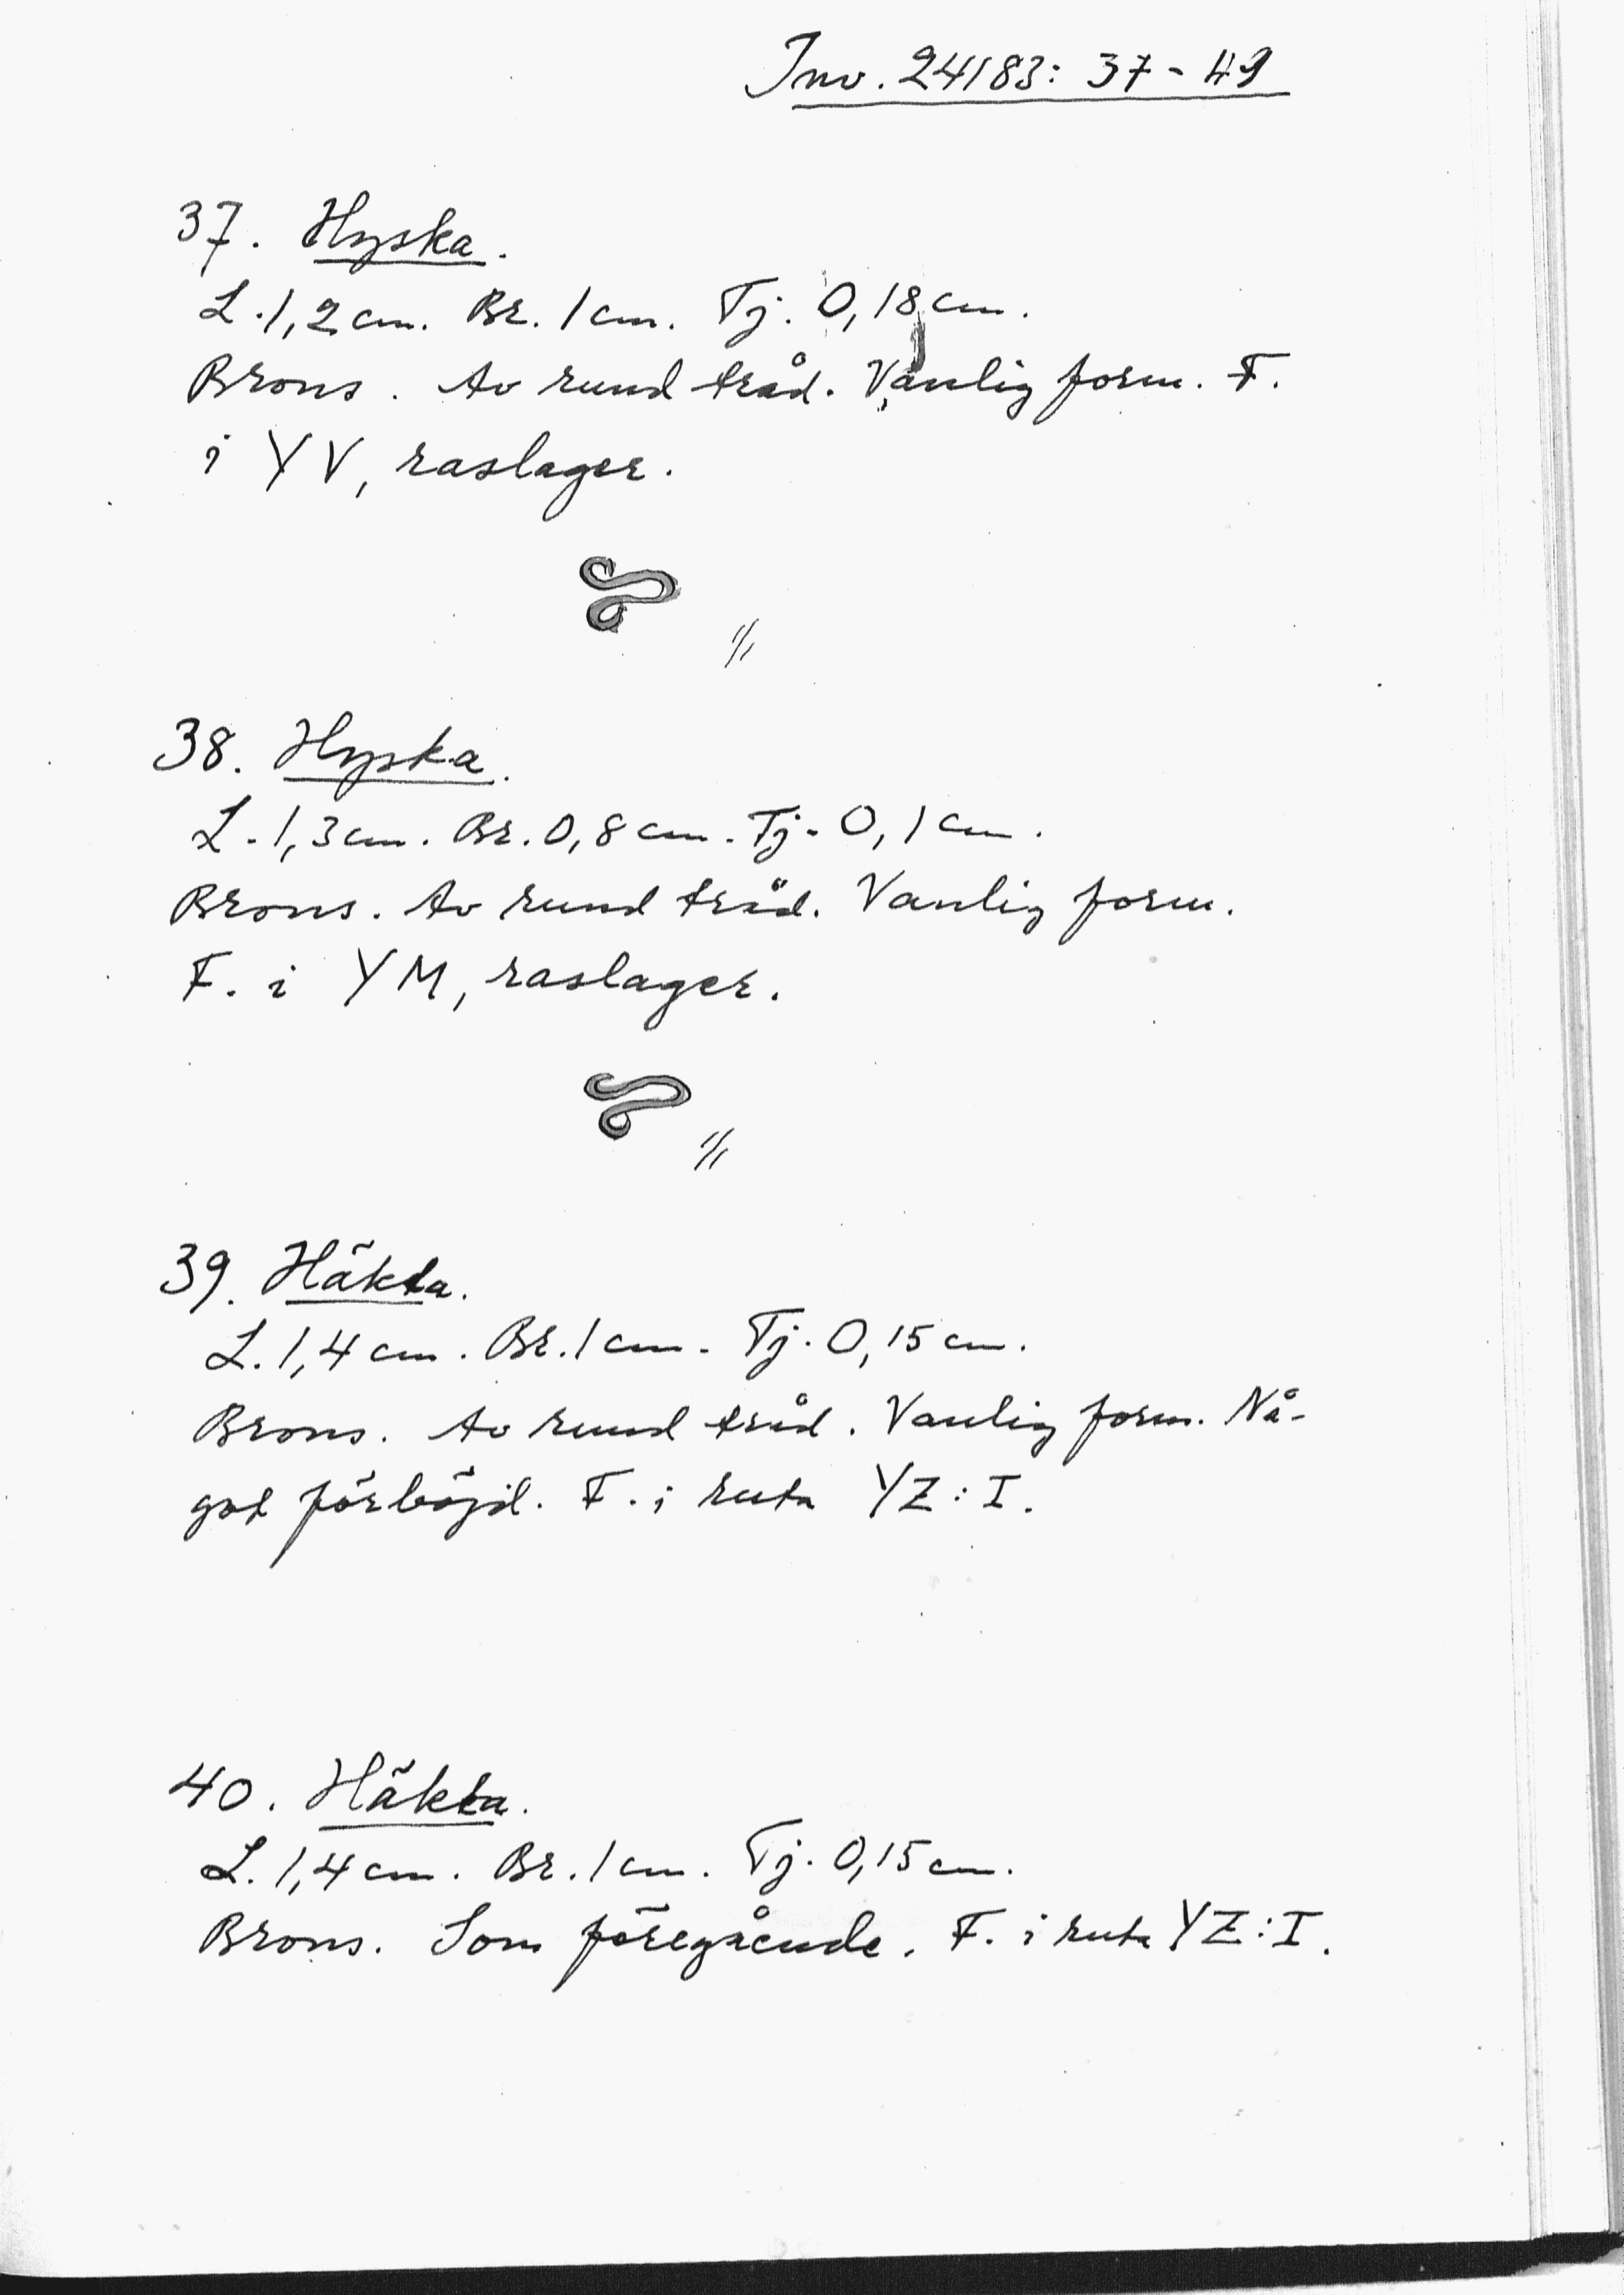 Inv. 24183: 37-49
37. Hyska.
L. 1,2 cm. Br. 1 cm. Tj. 0,18 cm.
Brons. Av rund tråd. Vanlig form. F.
i YV, raslager.
1/1
38. Hyska.
L. 1,3 cm. Br. 0,8 cm. Tj. 0,1 cm.
Brons. Av rund tråd. Vanlig form.
F. i YM, raslager.
1/1
39. Häkta.
L. 1,4 cm. Br. 1 cm. Tj. 0,15 cm.
Brons. Av rund tråd. Vanlig form. Nå-
got förböjd. F. i ruta YZ:I.
40. Häkta.
L. 1,4 cm. Br. 1 cm. Tj. 0,15 cm.
Brons. Som föregående. F. i ruta YZ:I.